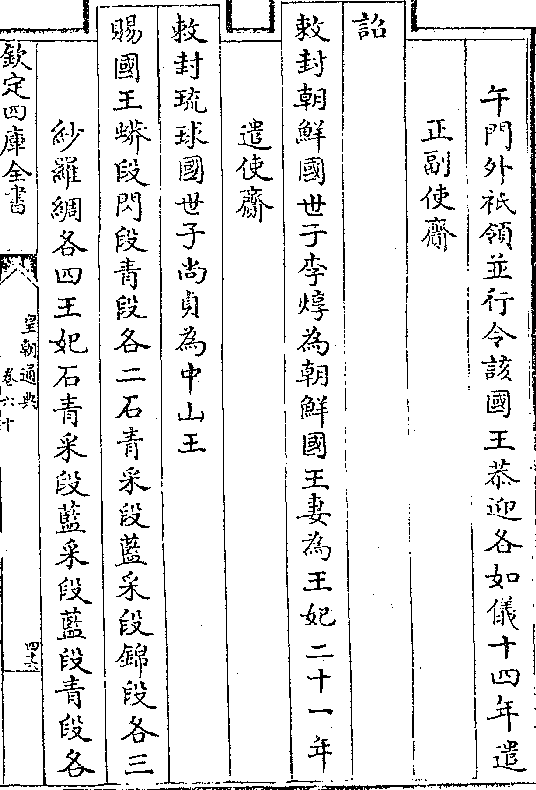 午門外祇領並行令該國王恭迎各如儀十四年遣
正副使齎
詔
敕封朝鮮國世子李焞為朝鮮國王妻為王妃二十一年
遣使齎
敕封琉球國世子尚貞為中山王
賜國王蟒段閃段青段各二石青采段藍采段錦段各三
紗羅綢各四王妃石青采段藍采段藍段青段各
欽定四庫全書
皇朝通典
卷六十